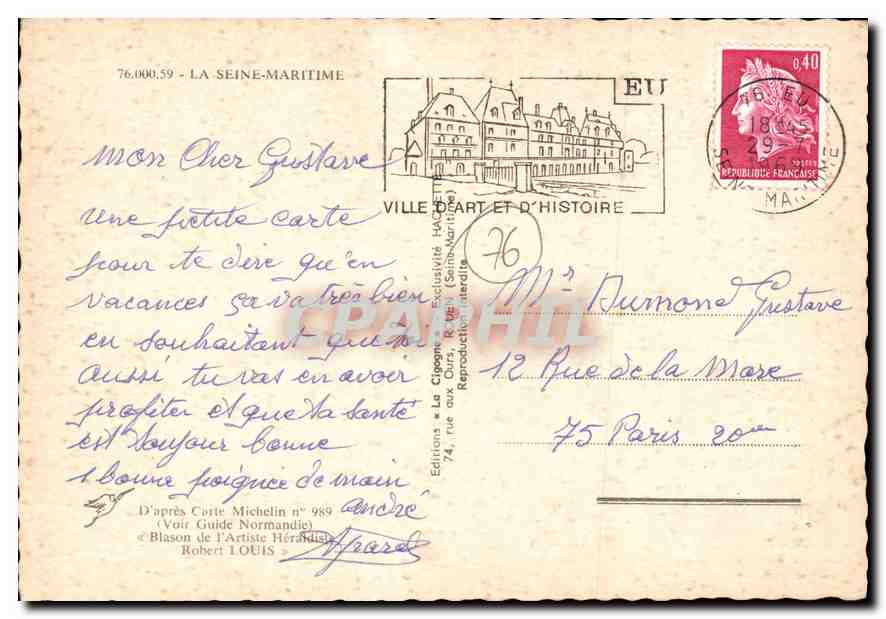 76.000.59 - LA SEINE-MARITIME
EU
VILLE D'ART ET D'HISTOIRE
0,40
POSTES
REPUBLIQUE FRANÇAISE
76 EU
18 H45
29
SEINE MARITIME
mon Cher Gustave
une petite carte
pour te dire qu'en
vacances ça va très bien
en souhaitant que toi
aussi tu vas en avoir
profiter et que ta santé
est toujour bonne
1 bonne poignée de main
andré
D'après Carte Michelin n° 989
(Voir Guide Normandie)
« Blason de l'Artiste Héraldiste
Robert LOUIS »
Editions « La Cigogne » - Exclusivité HACHETTE
74, rue aux Ours, ROUEN (Seine-Maritime)
Reproduction interdite
76
CPAPHIL
Mr Dumond Gustave
12 Rue de la Mare
75 Paris 20em